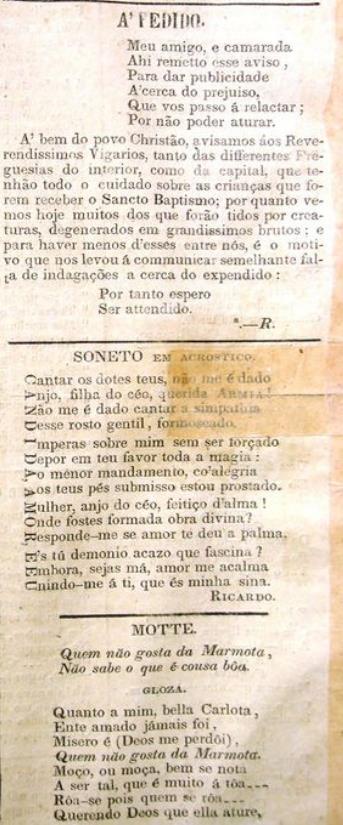 A' PEDIDO.
Meu amigo, e camarada
Ahi remetto esse aviso,
Para dar publicidade
A'cerca do prejuiso,
Que vos passo á relactar;
Por não poder aturar.
A' bem do povo Christão, avisamos áos Reve-
rendissimos Vigarios, tanto das differentes Fre-
guesias do interior, como da capital, que te-
nhão todo o cuidado sobre as crianças que fo-
rem receber o Sancto Baptismo; por quanto ve-
mos hoje muitos dos que forão tidos por crea-
turas, degenerados em grandissimos brutos: e
para haver menos d'esses entre nós, é o moti-
vo que nos levou á communicar semelhante fal-
ta de indagações a cerca do expendido:
Por tanto espero
Ser attendido.
*.—R.
SONETO EM ACROSTICO.
Cantar os dotes teus, não me é dado
Anjo, filha do céo, querida ARMIA!
Não me é dado cantar a simpathia
Desse rosto gentil, formoseado.
Imperas sobre mim sem ser forçado
Depor em teu favor toda a magia:
Ao menor mandamento, co'alegria
Aos teus pés submisso estou prostado.
Mulher, anjo do céo, feitiço d'alma!
Onde fostes formada obra divina?
Responde-me se amor te deu a palma.
E's tú demonio acazo que fascina?
Embora, sejas má, amor me acalma
Unindo-me á ti, que és minha sina.
RICARDO.
MOTTE.
Quem não gosta da Marmota,
Não sabe o que é cousa bôa.
GLOZA.
Quanto a mim, bella Carlota,
Ente amado jámais foi,
Misero é (Deos me perdôi),
Quem não gosta da Marmota.
Moço, ou moça, bem se nota
A ser tal, que é muito á tôa---
Rôa-se pois quem se rôa---
Querendo Deos que ella ature,